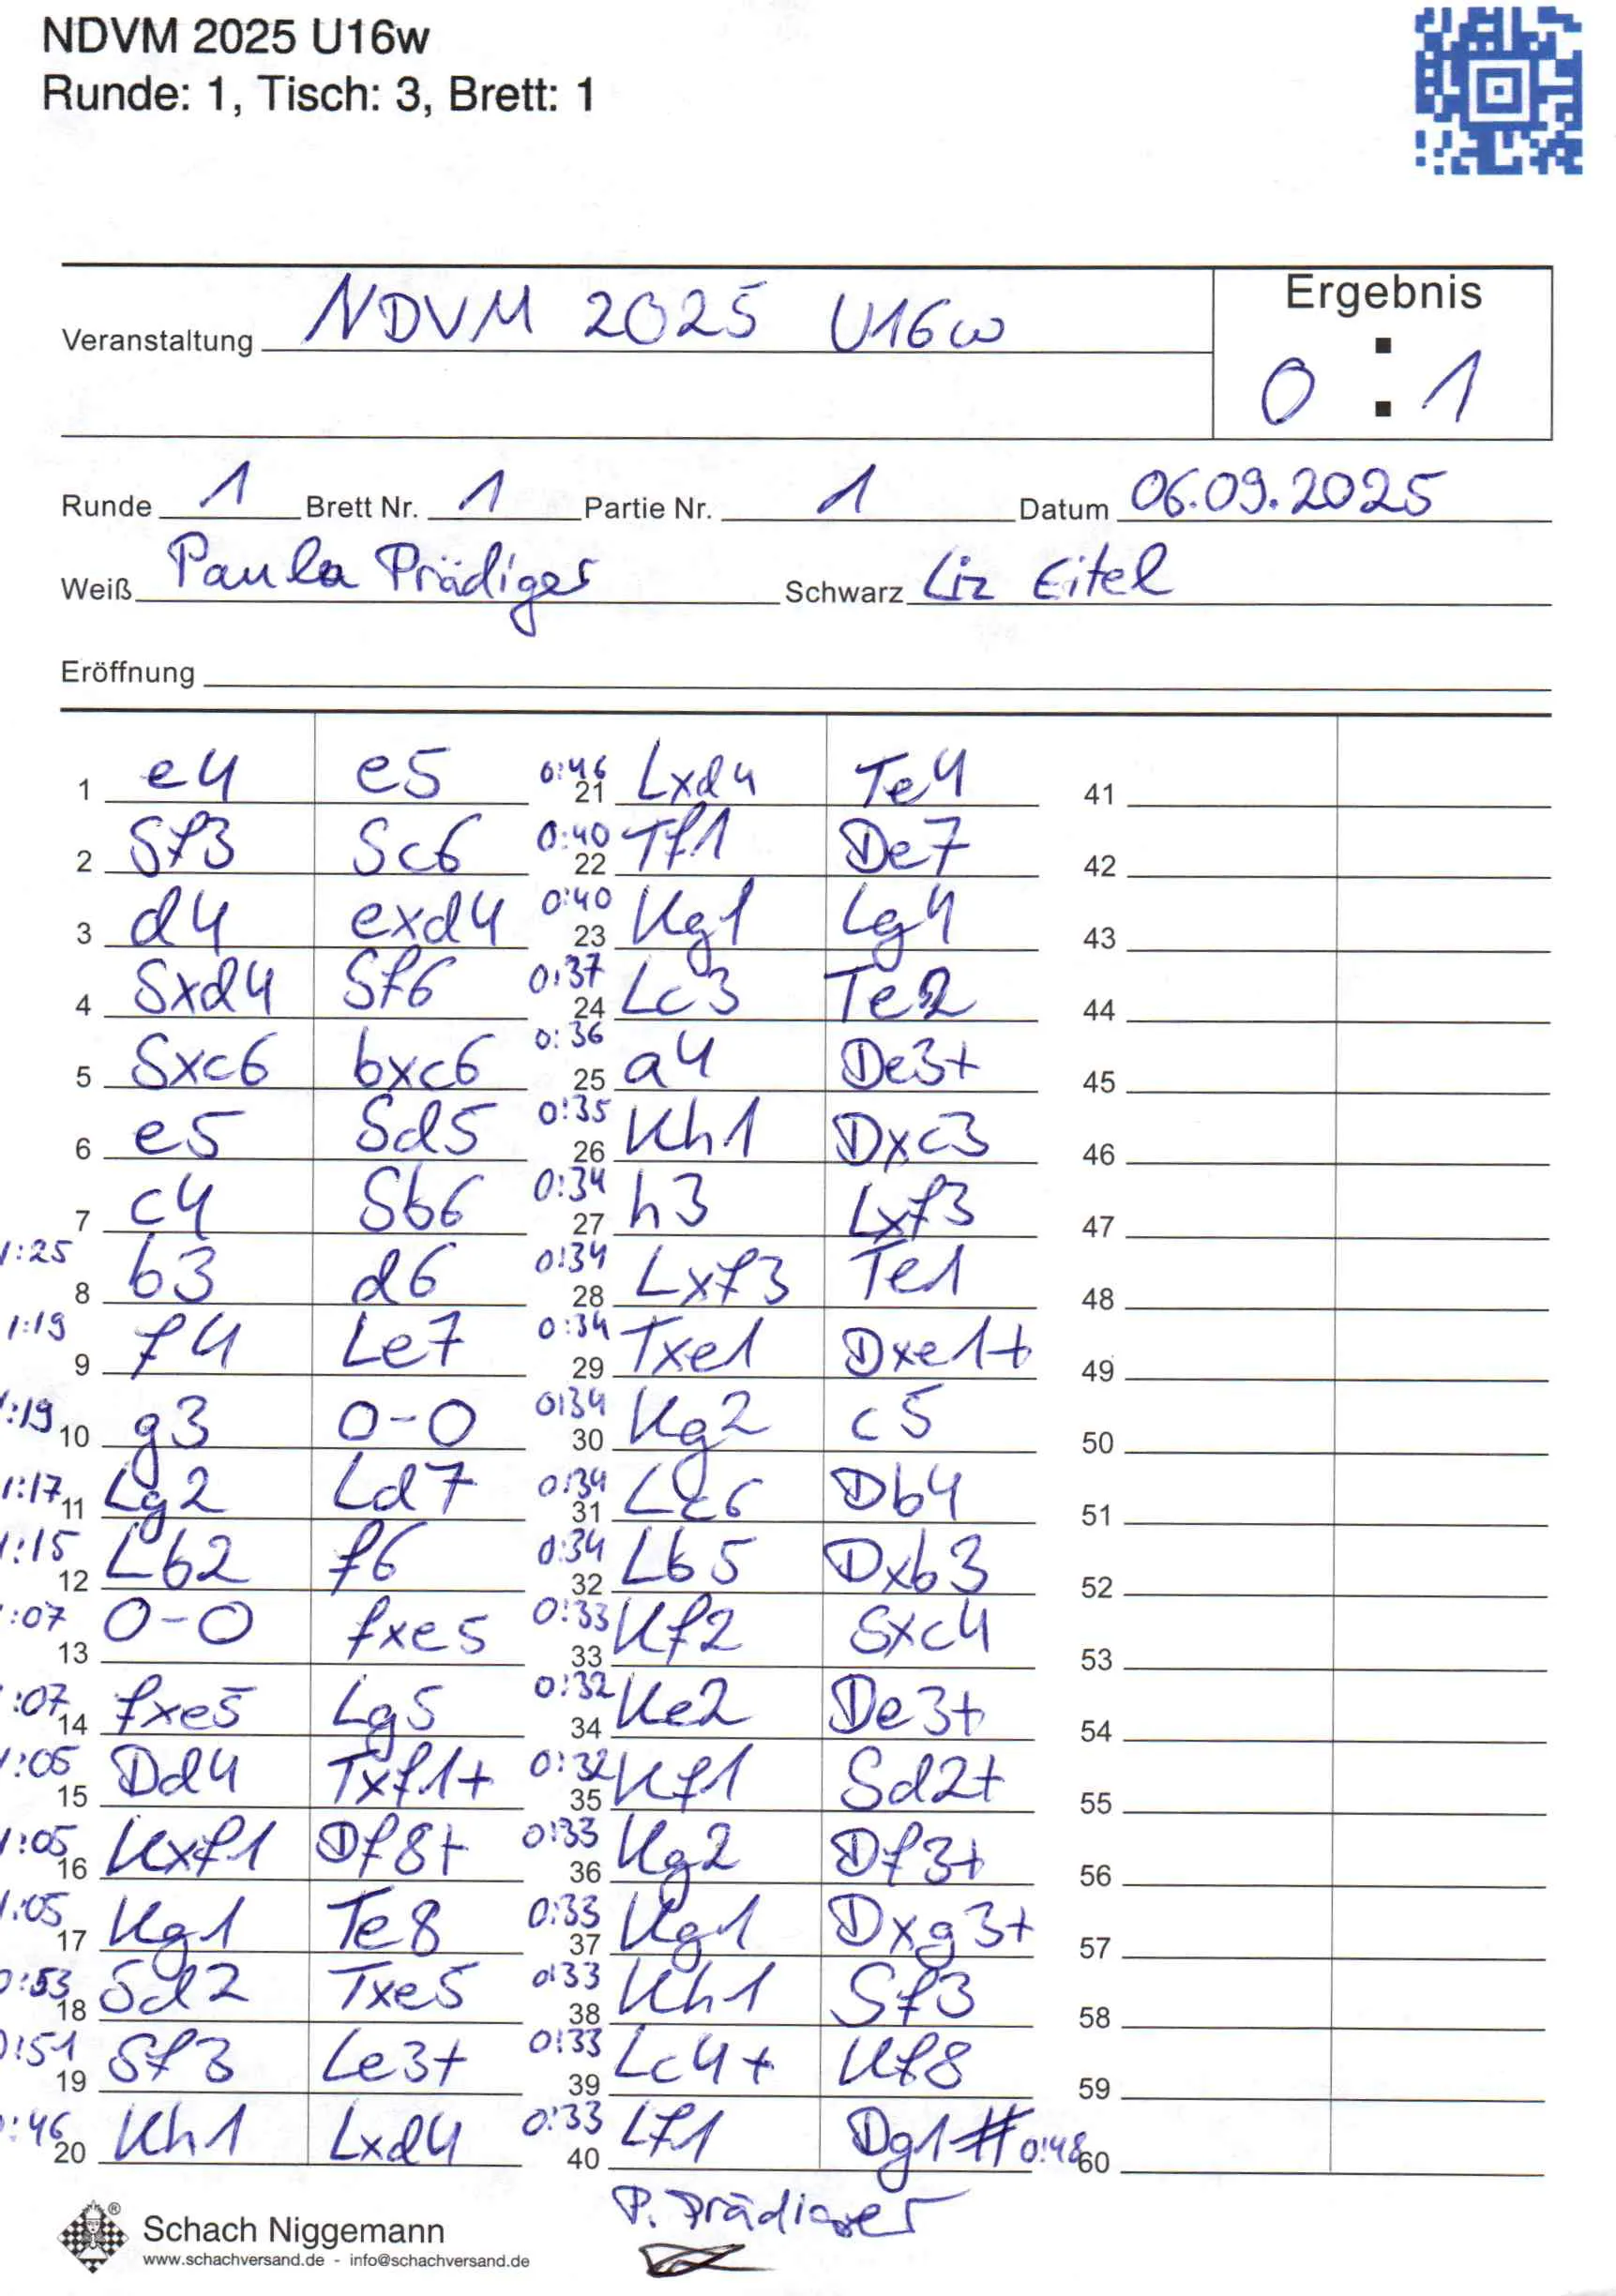 NDVM 2025 U16w
Runde: 1, Tisch: 3, Brett: 1
Ergebnis
Veranstaltung NDVM 2025 U16w
0 : 1
Runde 1 Brett Nr. 1 Partie Nr. 1 Datum 06.09.2025
Weiß Paula Prädiger Schwarz Liz Eitel
Eröffnung
1 e4 e5 0:46 21 Lxd4 Te4 41
2 Sf3 Sc6 0:40 22 Tf1 De7 42
3 d4 exd4 0:40 23 Kg1 Lg4 43
4 Sxd4 Sf6 0:37 24 Lc3 Te2 44
5 Sxc6 bxc6 0:36 25 a4 De3+ 45
6 e5 Sd5 0:35 26 Kh1 Dxc3 46
7 c4 Sb6 0:34 27 h3 Lxf3 47
1:25 8 b3 d6 0:34 28 Lxf3 Te1 48
1:19 9 f4 Le7 0:34 29 Txe1 Dxe1+ 49
1:19 10 g3 0-0 0:34 30 Kg2 c5 50
1:17 11 Lg2 Ld7 0:34 31 Lc6 Db4 51
1:15 12 Lb2 f6 0:34 32 Lb5 Dxb3 52
:07 13 0-0 fxe5 0:33 33 Kf2 Sxc4 53
:07 14 fxe5 Lg5 0:32 34 Ke2 De3+ 54
1:05 15 Dd4 Txf1+ 0:32 35 Kf1 Sd2+ 55
1:05 16 Kxf1 Df8+ 0:33 36 Kg2 Df3+ 56
1:05 17 Kg1 Te8 0:33 37 Kg1 Dxg3+ 57
0:53 18 Sd2 Txe5 0:33 38 Kh1 Sf3 58
0:51 19 Sf3 Le3+ 0:33 39 Lc4+ Kf8 59
:46 20 Kh1 Lxd4 0:33 40 Lf1 Dg1# 0:48 60
P. Prädiger
Schach Niggemann
www.schachversand.de - info@schachversand.de